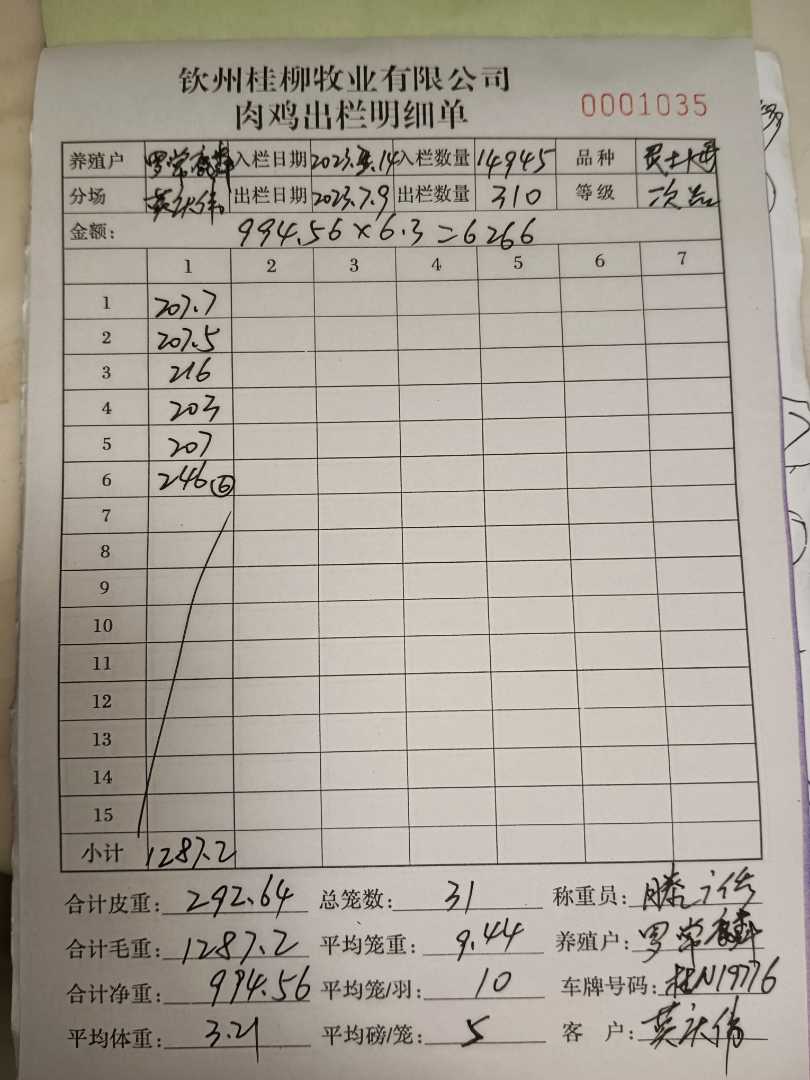 钦州桂柳牧业有限公司
肉鸡出栏明细单 0001035
养殖户 罗常 入栏日期 2023.5.14 入栏数量 14945 品种 土
分场 庆伟 出栏日期 2023.7.9 出栏数量 310 等级 次品
金额: 994.56×6.3=6266
1 2 3 4 5 6 7
1 207.7
2 207.5
3 216
4 203
5 207
6 246⑥
7
8
9
10
11
12
13
14
15
小计 1287.2
合计皮重: 292.64 总笼数: 31 称重员: 滕
合计毛重: 1287.2 平均笼重: 9.44 养殖户: 罗常
合计净重: 994.56 平均笼/羽: 10 车牌号码: 桂N19776
平均体重: 3.21 平均磅/笼: 5 客 户: 庆伟